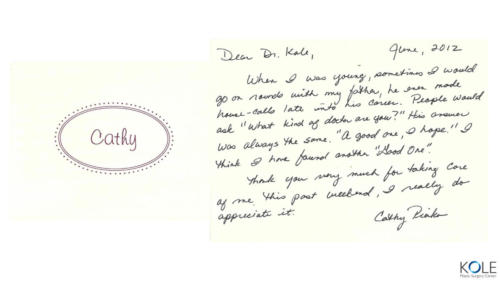 Cathy
Dear Dr. Kole,
June, 2012
When I was young, sometimes I would
go on rounds with my father, he even made
house-calls late into his career. People would
ask "What kind of doctor are you?" His answer
was always the same. "A good one, I hope." I
think I have found another "Good One".
Thank you very much for taking care
of me this past weekend, I really do
appreciate it.
Cathy
KOLE
Plastic Surgery Center